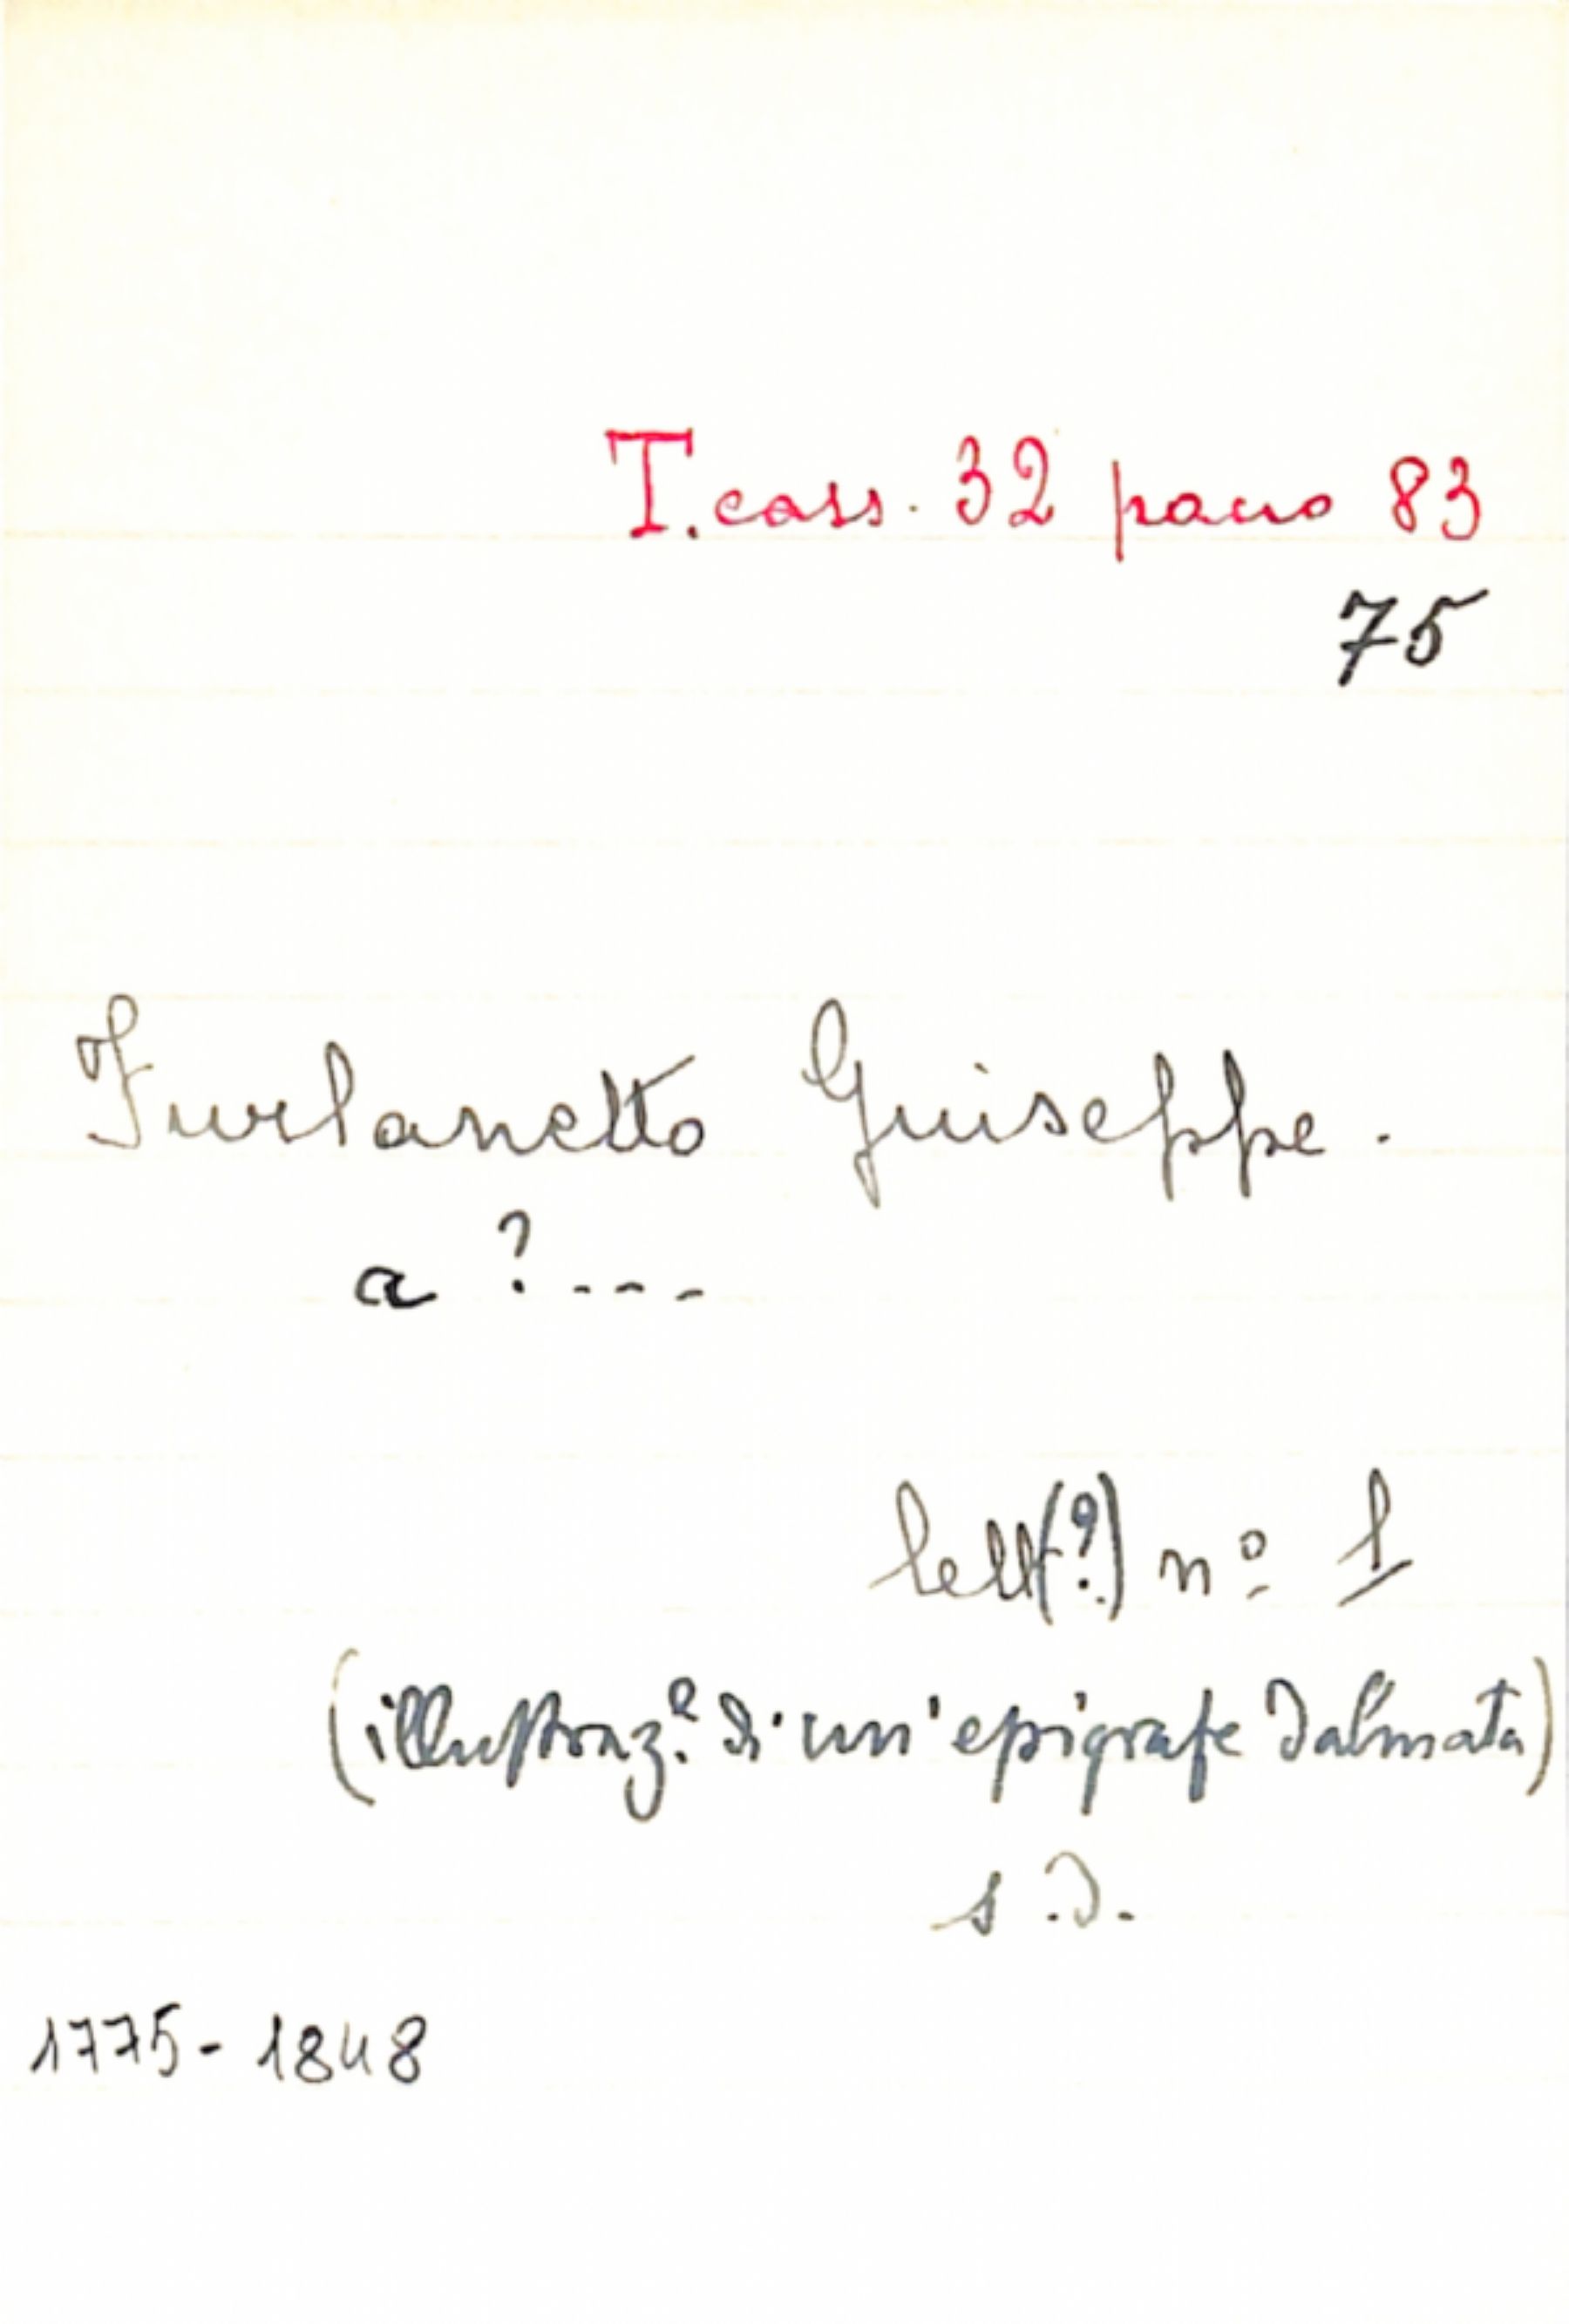 T. cass. 32 pacco 83
75
Furlanetto Giuseppe.
a ? ---
lett(?) nº 1
(illustraz.e di un'epigrafe dalmata)
s.d.
1775-1848